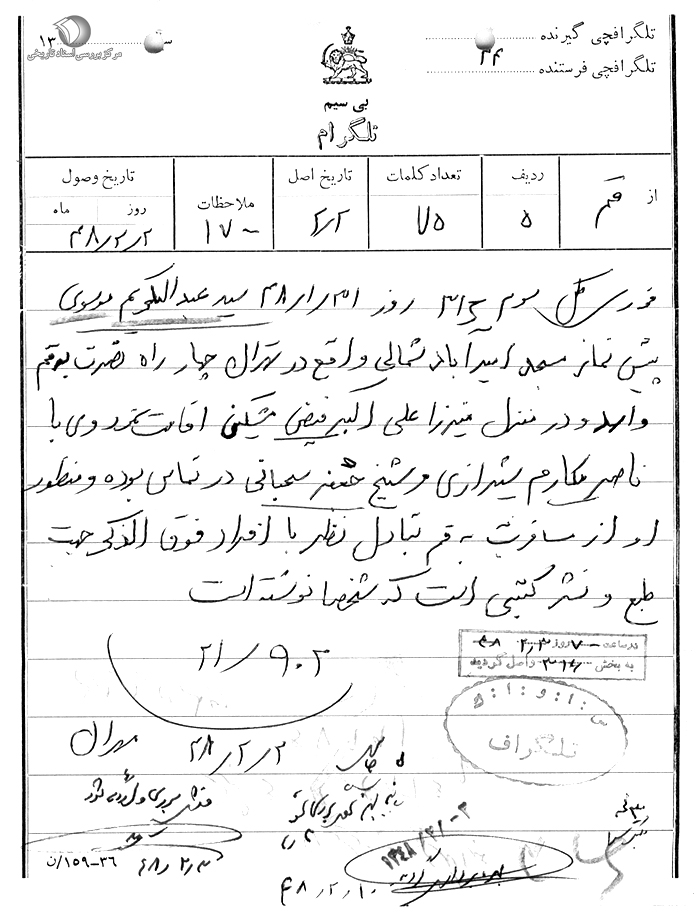 تلگرافچی گیرنده
تلگرافچی فرستنده ۳۴
۱۳
مرکز بررسی اسناد تاریخی
بی سیم
تلگرام
از قم
ردیف ۵
تعداد کلمات ۷۵
تاریخ اصل ۲/۲
ملاحظات ۱۷۰۰
تاریخ وصول
روز ماه
۴۸/۲/۲
فوری کل سوم ۳۱۶ روز ۴۸/۱/۳۱ سید عبدالکریم موسوی
پیش نماز مسجد امیرآباد شمالی واقع در تهران چهار راه نصرت بقم
وارد و در منزل میرزا علی اکبر فیض مشکینی اقامت نمود وی با
ناصر مکارم شیرازی و شیخ جعفر سبحانی در تماس بوده و منظور
او از مسافرت به قم تبادل نظر با افراد فوق الذکر جهت
طبع و نشر کتبی است که شخصا نوشته است
۲۱/۹۰۲
مهران
۴۸/۲/۲
در ساعت ۷۰۰ روز ۴۸/۲/۳
به بخش ۳۱۶ واصل گردید
تلگراف
۴۸/۲/۳
۱۳۴۸/۲/۰۳
۴۸/۲/۱۰
۳۶-۱۵۹/ن